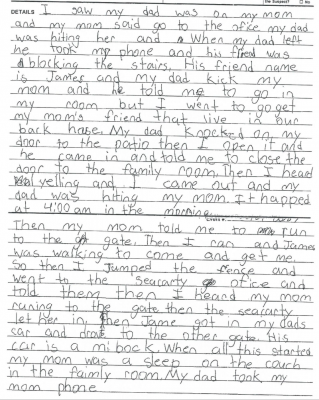 DETAILS I saw my dad was on my mom
and my mom said go to the ofice my dad
was hiting her and When my dad left
he took my phone and his frend was
blocking the stairs. His friend name
is James and my dad kick my
mom and he told me to go in
my room but I went to go get
my mom's friend that live in our
back hose. My dad Knocked on my
door to the patio then I open it and
he came in and told me to close the
door to the family room. Then I heard
yelling and I came out and my
dad was hiting my mom. It happed
at 4:00 am in the morning.
Then my mom told me to run
to the gate. Then I ran and James
was walking to come and get me.
So then I Jumped the fence and
went to the searcarty ofice and
told them then I heard my mom
runing to the gate then the searcarty
let her in, then Jame got in my dads
car and drove to the other gate. His
car is a mi bock. When all this started
my mom was a sleep on the couch
in the faimly room. My dad took my
mom phone